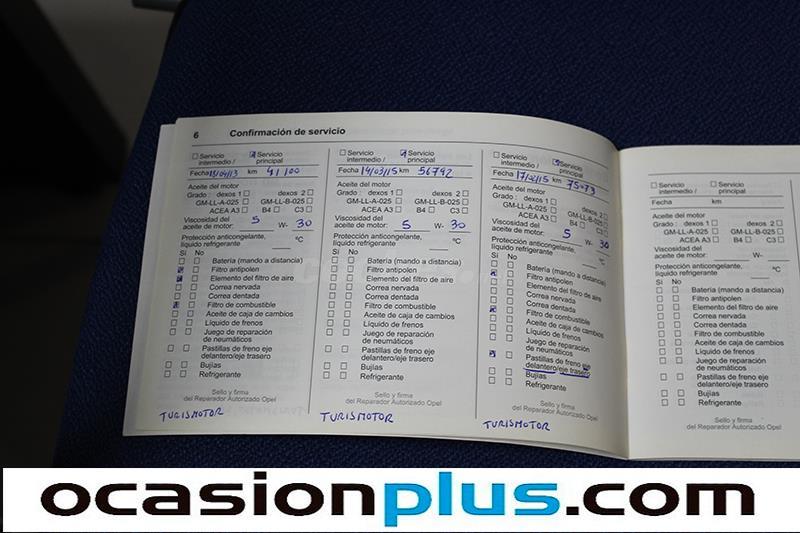 6 Confirmación de servicio
Servicio intermedio / Servicio principal
Fecha 18/04/13 km 41100
Aceite del motor
Grado: dexos 1 dexos 2
GM-LL-A-025 GM-LL-B-025
ACEA A3 B4 C3
Viscosidad del
aceite de motor: 5 W- 30
Protección anticongelante,
líquido refrigerante °C
Sí No
Batería (mando a distancia)
Filtro antipolen
Elemento del filtro de aire
Correa nervada
Correa dentada
Filtro de combustible
Aceite de caja de cambios
Líquido de frenos
Juego de reparación
de neumáticos
Pastillas de freno eje
delantero/eje trasero
Bujías
Refrigerante
Sello y firma
del Reparador Autorizado Opel
TURISMOTOR
Servicio intermedio / Servicio principal
Fecha 14/03/15 km 56792
Aceite del motor
Grado: dexos 1 dexos 2
GM-LL-A-025 GM-LL-B-025
ACEA A3 B4 C3
Viscosidad del
aceite de motor: 5 W- 30
Protección anticongelante,
líquido refrigerante °C
Sí No
Batería (mando a distancia)
Filtro antipolen
Elemento del filtro de aire
Correa nervada
Correa dentada
Filtro de combustible
Aceite de caja de cambios
Líquido de frenos
Juego de reparación
de neumáticos
Pastillas de freno eje
delantero/eje trasero
Bujías
Refrigerante
Sello y firma
del Reparador Autorizado Opel
TURISMOTOR
Servicio intermedio / Servicio principal
Fecha km
Aceite del motor
Grado: dexos 1 dexos 2
GM-LL-A-025 GM-LL-B-025
ACEA A3 B4 C3
Viscosidad del
aceite de motor: 5 W- 30
Protección anticongelante,
líquido refrigerante °C
Sí No
Batería (mando a distancia)
Filtro antipolen
Elemento del filtro de aire
Correa nervada
Correa dentada
Filtro de combustible
Aceite de caja de cambios
Líquido de frenos
Juego de reparación
de neumáticos
Pastillas de freno eje
delantero/eje trasero
Bujías
Refrigerante
Sello y firma
del Reparador Autorizado Opel
TURISMOTOR
Servicio intermedio / Servicio principal
Fecha km
Aceite del motor
Grado: dexos 1 dexos 2
GM-LL-A-025 GM-LL-B-025
ACEA A3 B4 C3
Viscosidad del
aceite de motor: W-
Protección anticongelante,
líquido refrigerante °C
Sí No
Batería (mando a distancia)
Filtro antipolen
Elemento del filtro de aire
Correa nervada
Correa dentada
Filtro de combustible
Aceite de caja de cambios
Líquido de frenos
Juego de reparación
de neumáticos
Pastillas de freno eje
delantero/eje trasero
Bujías
Refrigerante
Sello y firma
del Reparador Autorizado Opel
ocasionplus.com